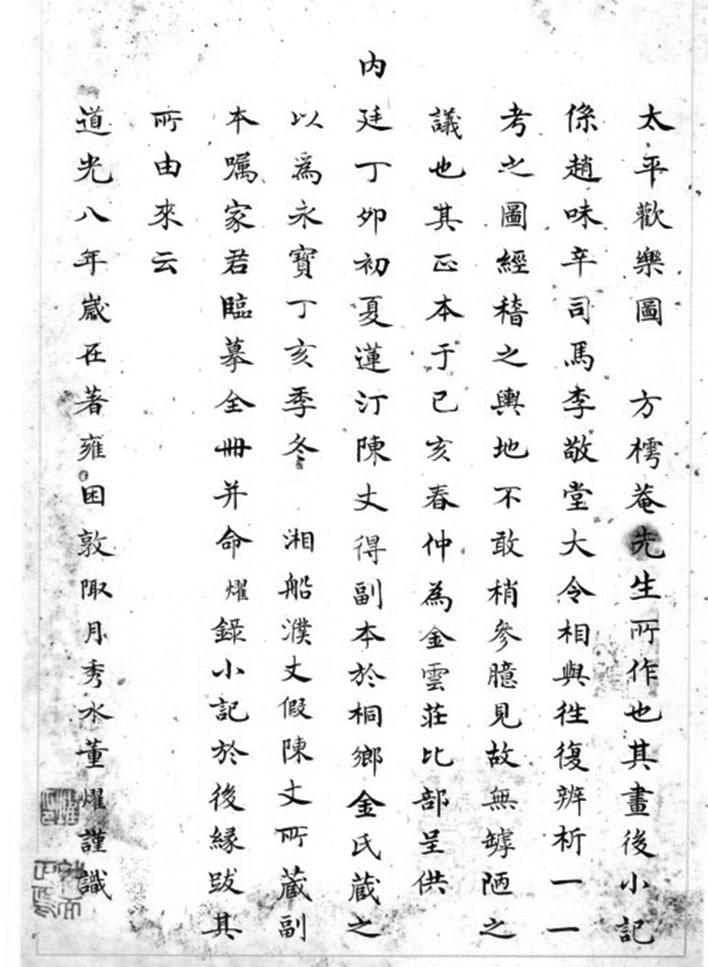 太平歡樂圖　方樗菴先生所作也其畫後小記
係趙味辛司馬李敬堂大令相與往復辨析一一
考之圖經稽之輿地不敢稍參臆見故無罅陋之
議也其正本于已亥春仲為金雲莊比部呈供
內廷丁夘初夏蓮汀陳丈得副本於桐鄉金氏藏之
以為永寶丁亥季冬　湘船濮丈假陳丈所藏副
本囑家君臨摹全冊并命燿錄小記於後緣跋其
所由來云
道光八年歲在著雍困敦陬月秀水董燿謹識